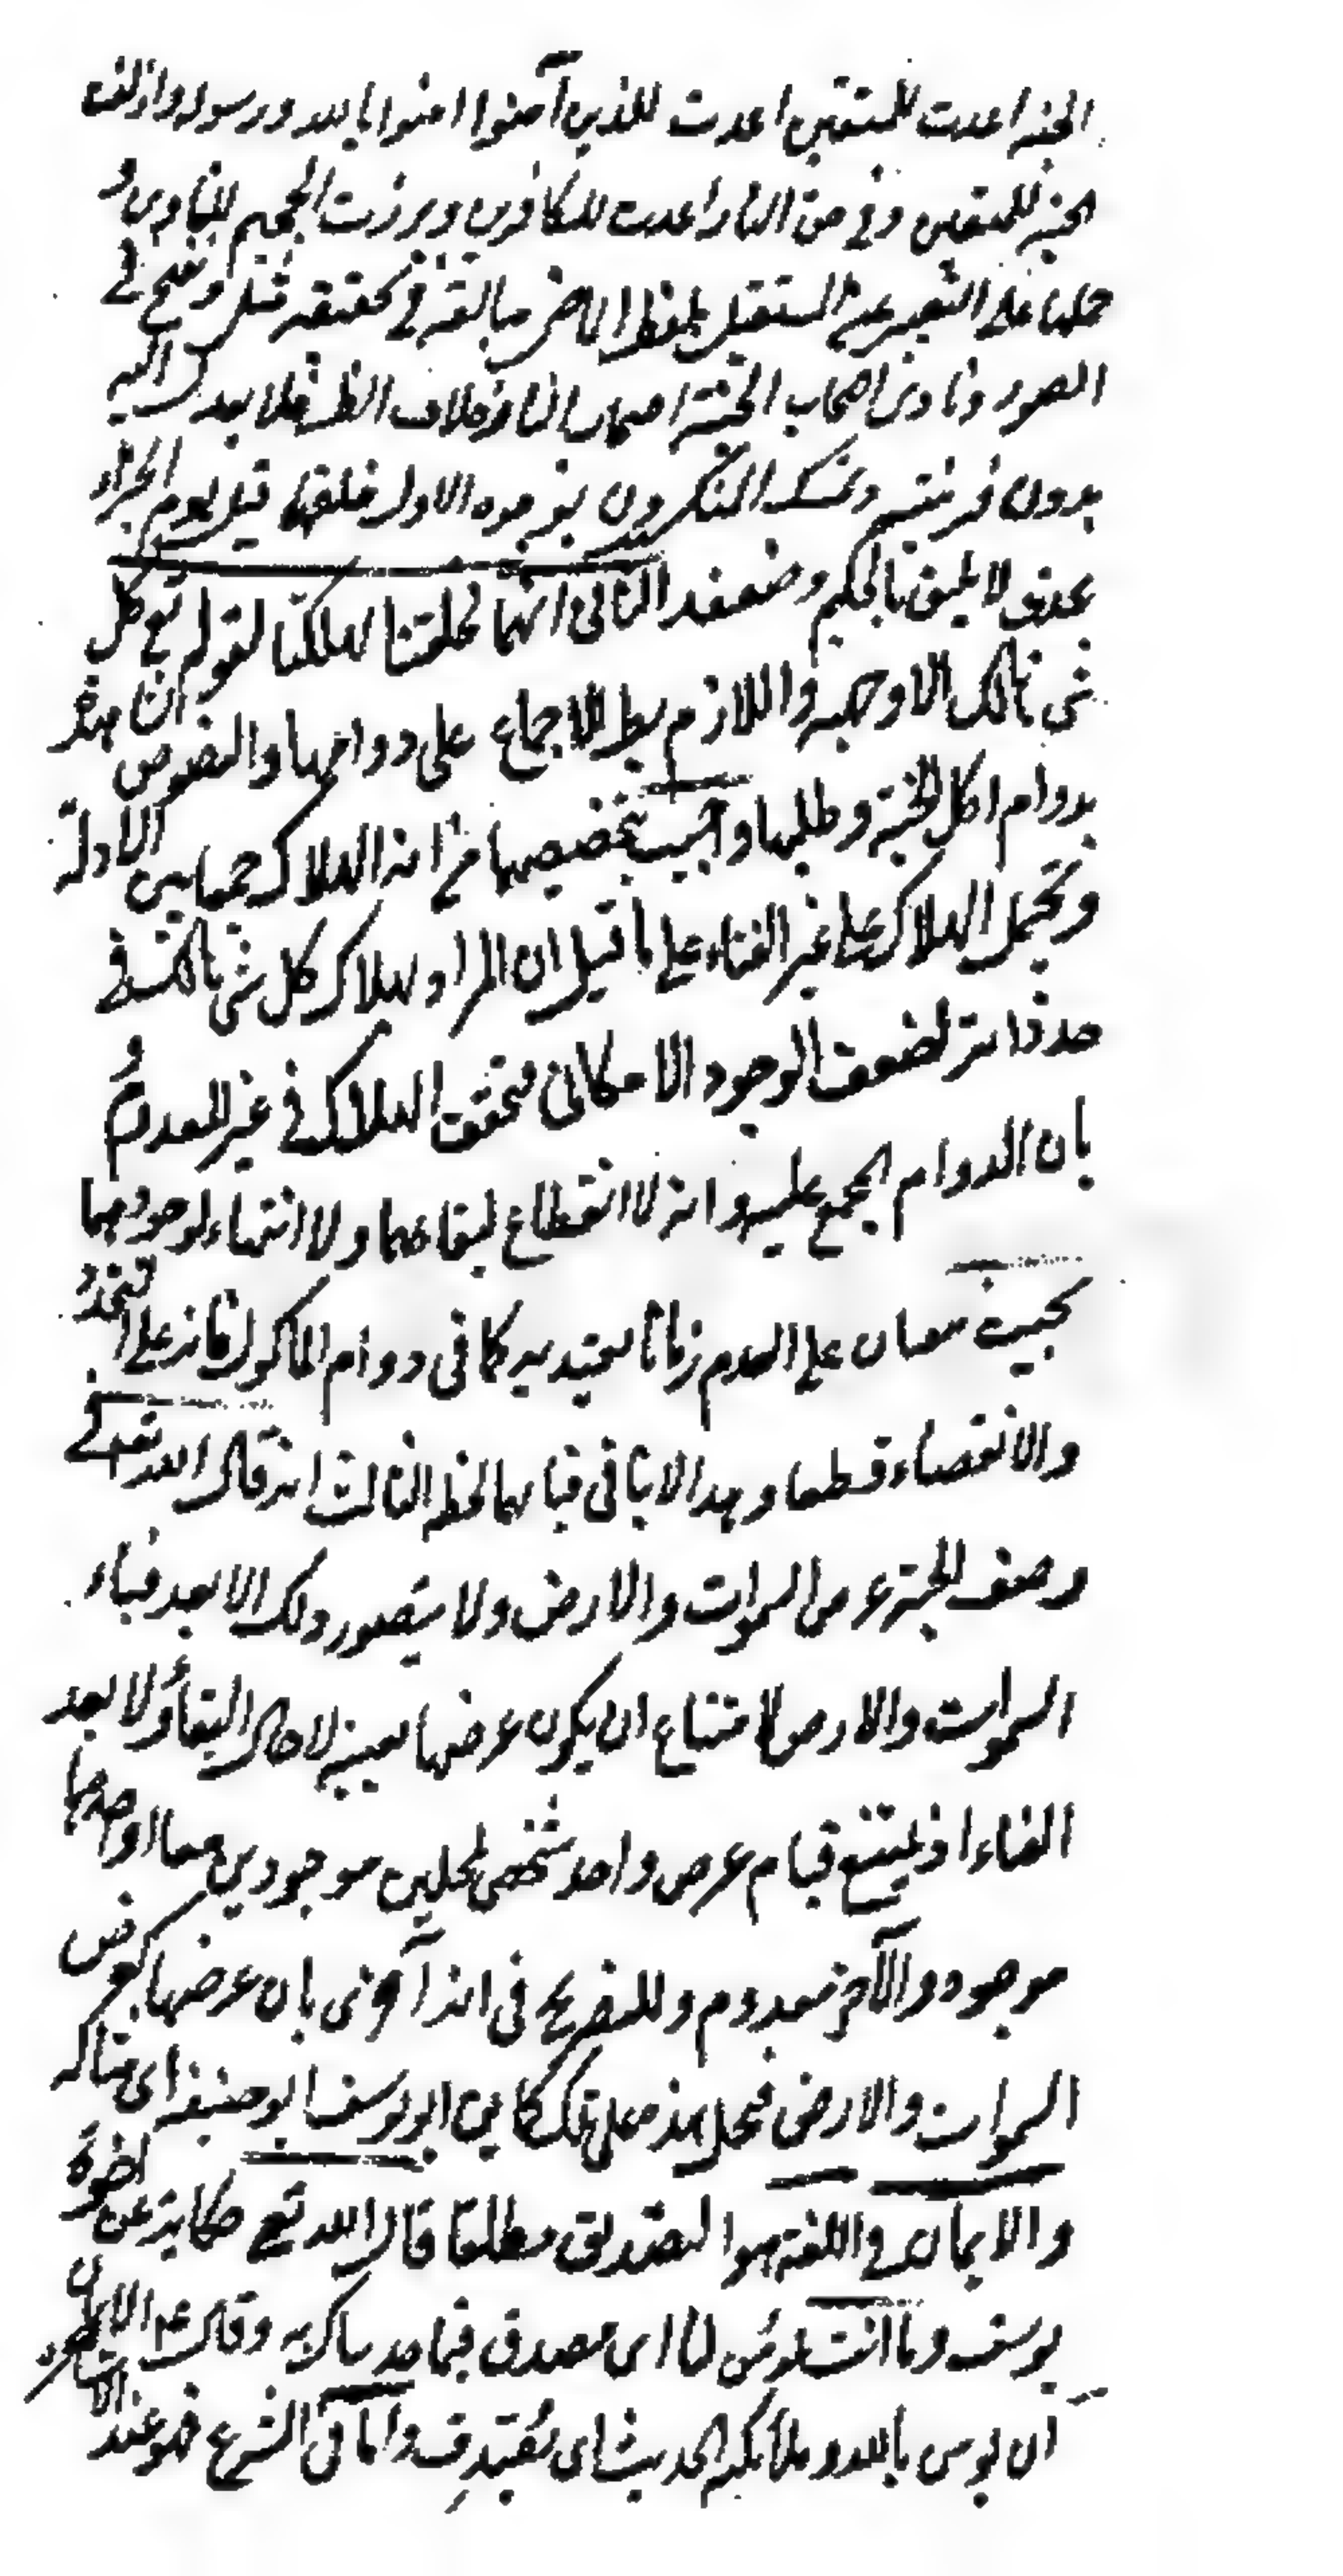 الجنة اعدت للمتقين اعدت للذين آمنوا امنوا بالله ورسوله وازلفت
الجنة للمتقين وفي حق النار اعدت للكافرين وبرزت الجحيم للغاوين و
حملها على التعبير عن المستقبل بلفظ الماضي مبالغة في تحققه مثل ونفخ في
الصور ونادى اصحاب الجنة اصحاب النار خلاف الظ فلا يعدل اليه
بدون قرينة وتمسك المنكرون بوجوه الاول خلقهما قبل يوم الجزاء
عبث لا يليق بالحكيم وضعفه الثاني انهما لو خلقتا لهلكتا لقوله تع كل
شئ هالك الا وجهه واللازم بط للاجماع على دوامهما والنصوص الشاهدة
بدوام اكل الجنة وظلها واجيب بتخصيصهما من اية الهلاك جمعا بين الادلة
وبحمل الهلاك على غير الفناء على ما قيل ان المراد بهلاك كل شئ انه هالك في
حد ذاته لضعف الوجود الامكاني فتحقق الهلاك في غير المعدوم و
بان الدوام المجمع عليه هو انه لا انقطاع لبقائهما ولا انتهاء لوجودهما
بحيث يبقيان على العدم زمانا يعتد به كما في دوام المأكول فانه على التجدد
والانقضاء قطعا وهذا لا ينافي فناءهما لحظة الثالث انه قال الله تع في
وصف الجنة عرضها السموات والارض ولا يتصور ذلك الا بعد فناء
السموات والارض لامتناع ان يكون عرضها بعينه لا حال البقاء ولا بعد
الفناء اذ يمتنع قيام عرض واحد شخصي لمحلين موجودين معا او احدهما
موجود والآخر معدوم وللتصريح في اية آخرى بان عرضها كعرض
السموات والارض فيحمل هذه على تلك كما يق ابو يوسف ابو حنيفة اي مثله
والايمان في اللغة هو التصديق مطلقا قال الله تع حكاية عن اخوة
يوسف وما انت بمؤمن لنا اي مصدق فيما حدثناك به وقال عم الايمان
ان تؤمن بالله وملائكته الحديث اي تصدق واما في الشرع فهو عند الاشاعرة